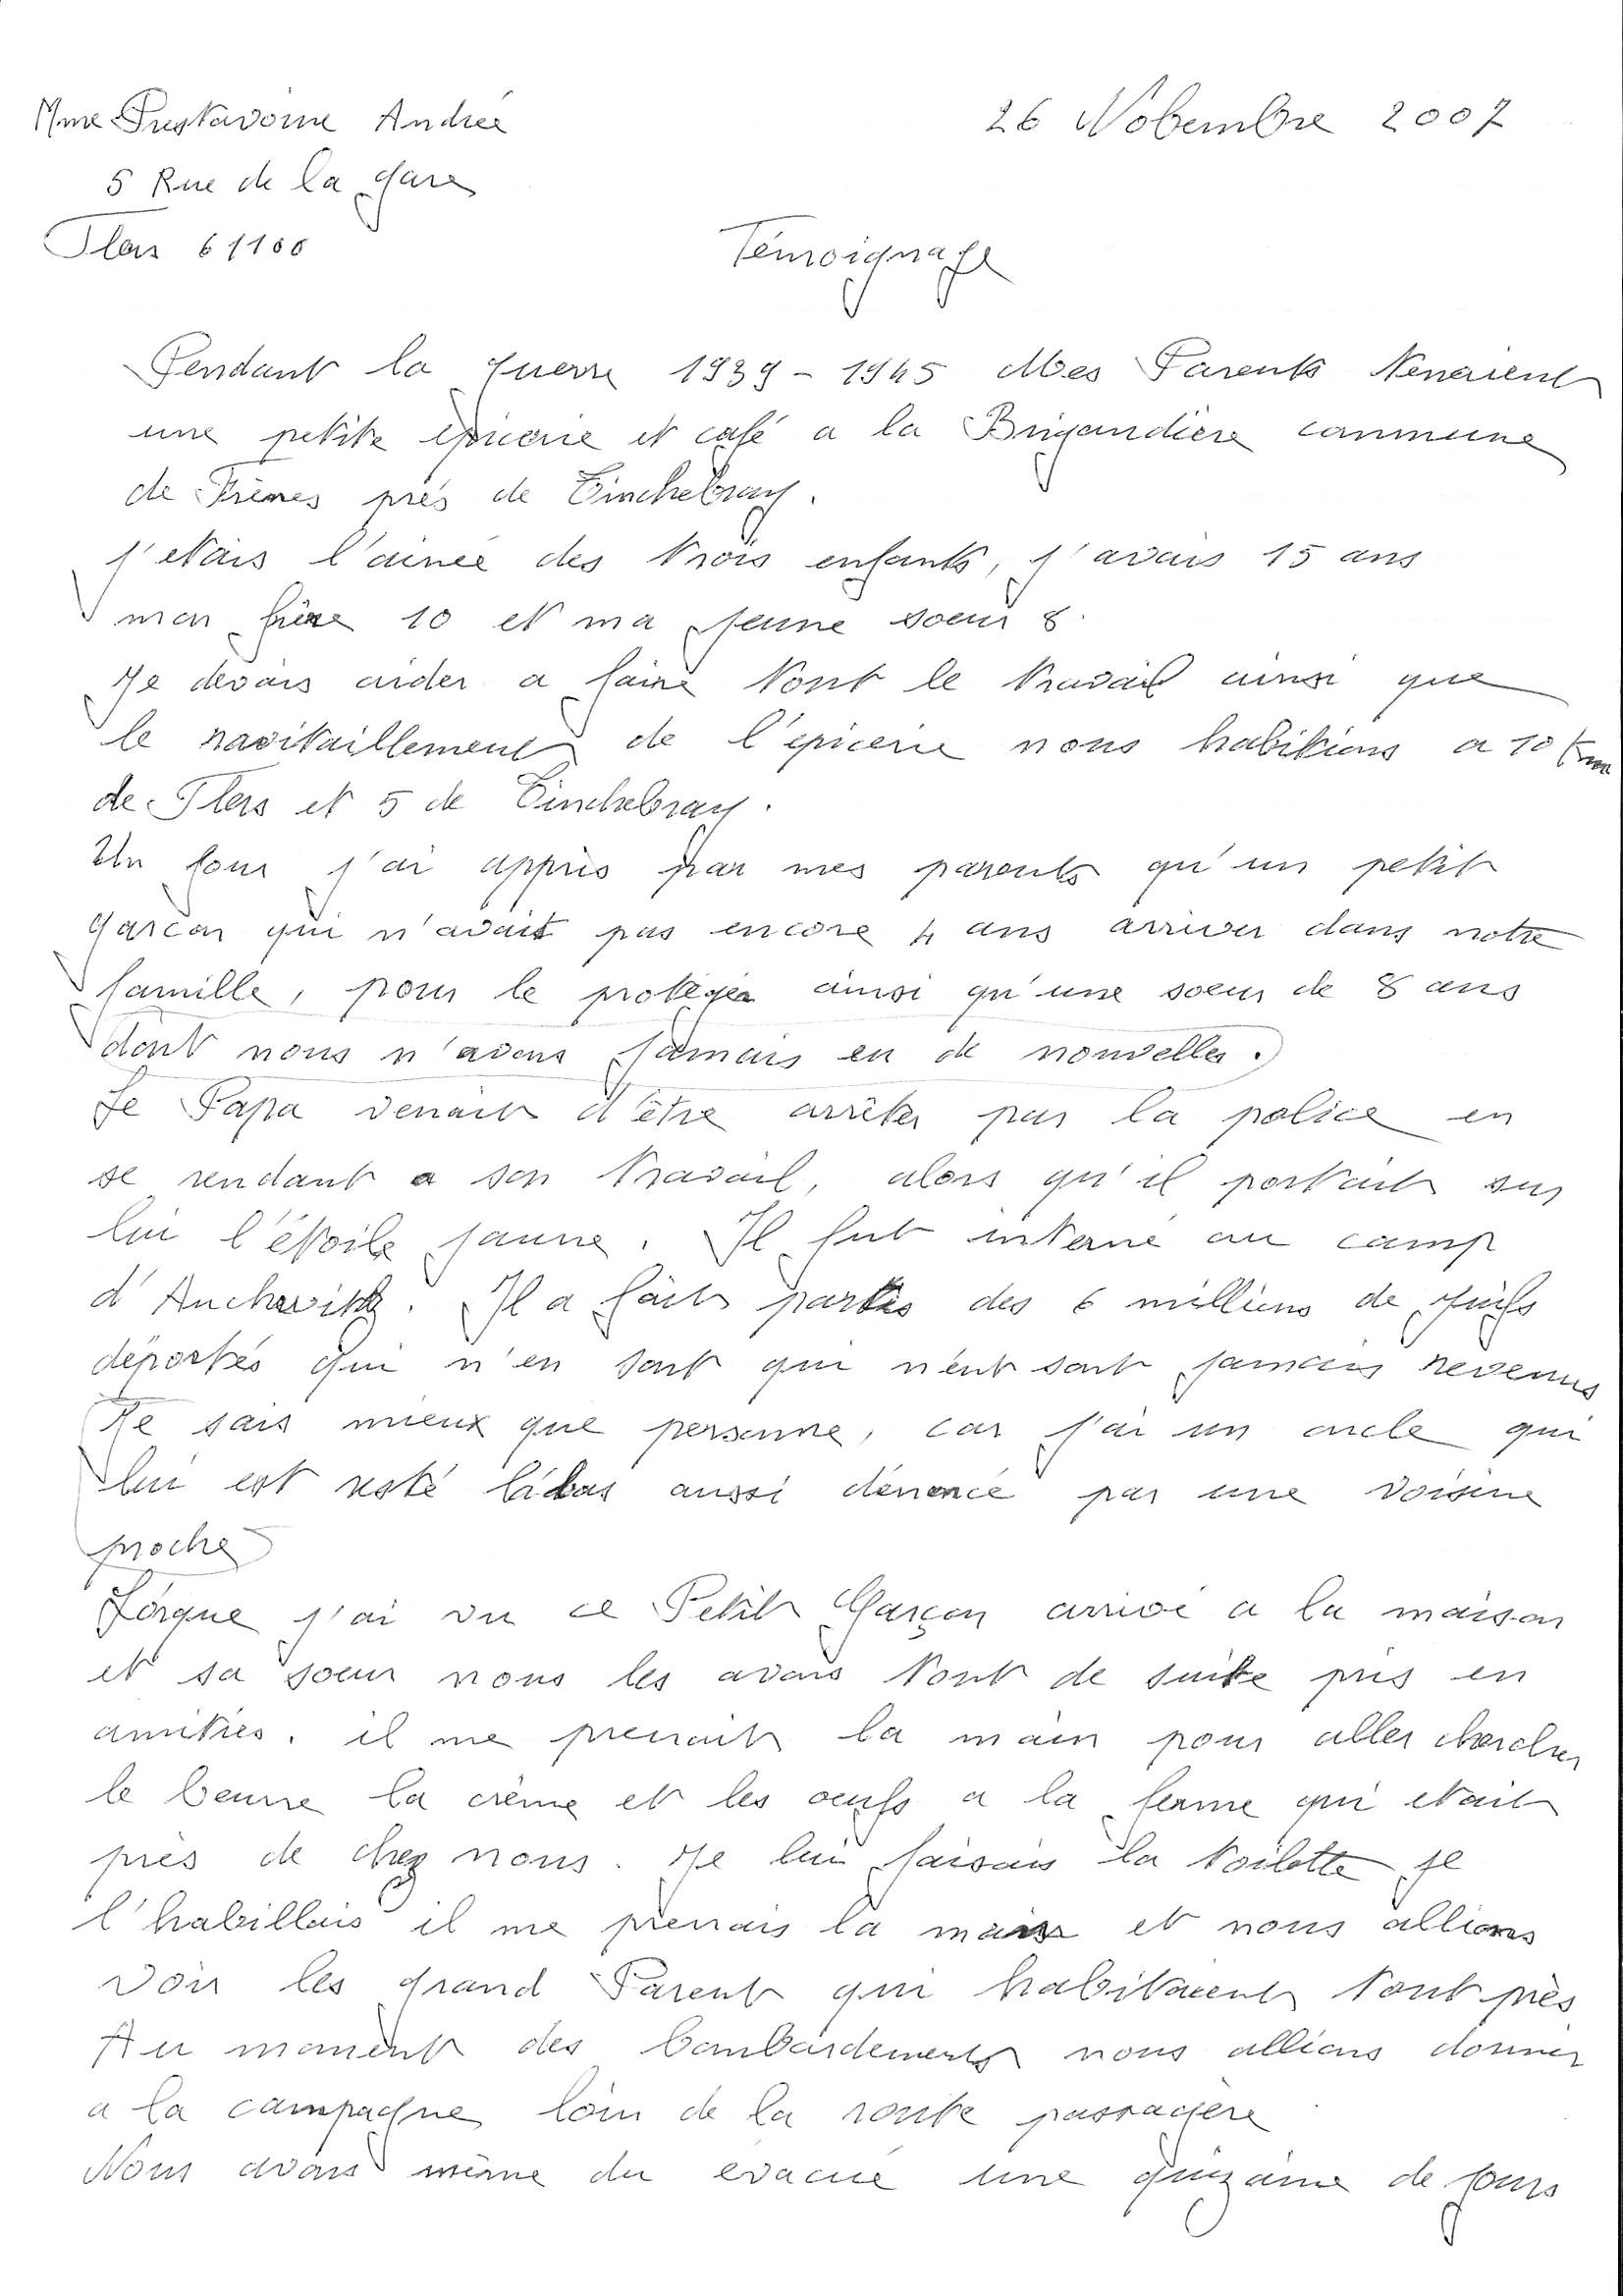 Mme Prestavoine Andrée
26 Novembre 2007
5 Rue de la gare
Flers 61100
Témoignage
Pendant la guerre 1939 - 1945 Mes Parents Tenaient
une petite épicerie et café a la Brigandière commune
de Frênes près de Tinchebray.
j'etais l'ainée des trois enfants, j'avais 15 ans
mon frère 10 et ma jeune soeur 8.
Je devais aider a faire tout le travail ainsi que
le ravitaillement de l'épicerie nous habitions a 10 km
de Flers et 5 de Tinchebray.
Un jour j'ai appris par mes parents qu'un petit
garçon qui n'avait pas encore 4 ans arriver dans notre
famille, pour le protéger ainsi qu'une soeur de 8 ans
dont nous n'avons jamais eu de nouvelles.
Le Papa venait d'être arrêter par la police en
se rendant a son travail, alors qu'il portait sur
lui l'étoile jaune. Il fut interné au camp
d'Auchwitz. Il a fait partis des 6 millions de juifs
déportés qui n'en sont qui n'ent sont jamais revenus
Je sais mieux que personne, car j'ai un oncle qui
lui est resté làbas aussi dénoncé par une voisine
proche
Lorque j'ai vu ce Petit Garçon arrivé a la maison
et sa soeur nous les avons tout de suite pris en
amitiés. il me prenait la main pour aller chercher
le beurre la crème et les oeufs a la ferme qui etait
près de chez nous. Je lui faisais la toilette je
l'habillais il me prenais la main et nous allions
voir les grand Parent qui habitaient tout près
Au moment des bombardements nous allions dormir
a la campagne loin de la route passagère
Nous avons même du évacué une quizaine de jours